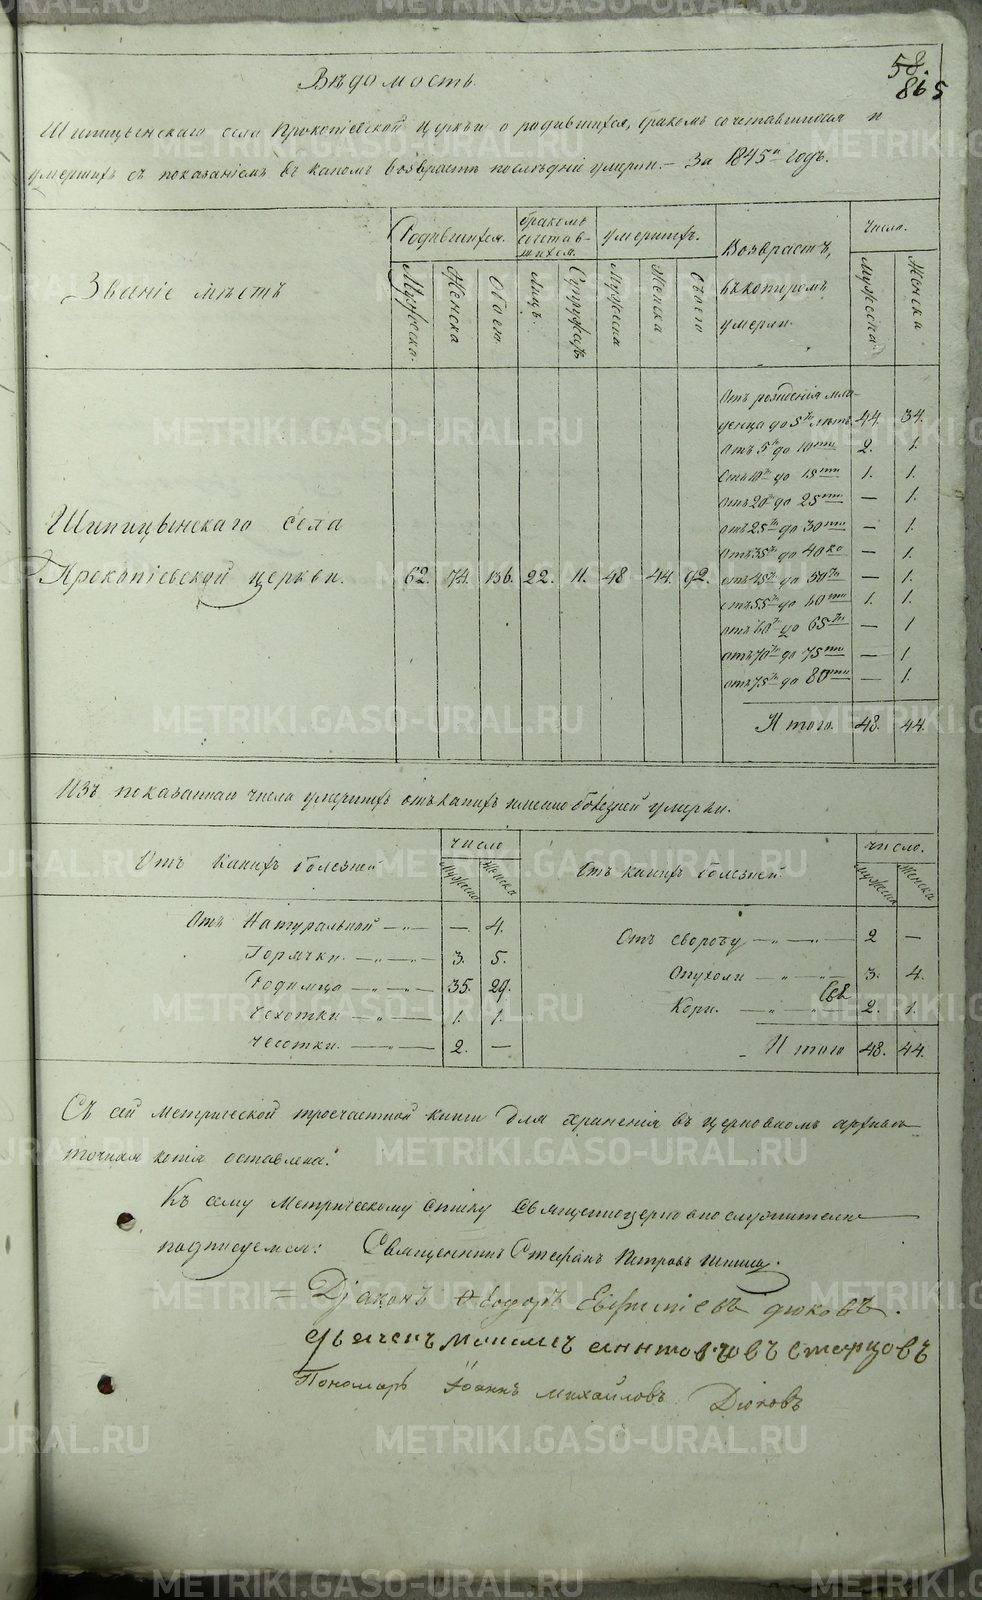 58.
865
Вѣдомость.
Шипицынскаго села Прокопіевской церкви о родившихся, бракомъ сочетавшихся и
умершихъ съ показаніемъ въ какомъ возврастѣ послѣдніи умерли. - За 1845й годъ.
Званіе мѣстъ
Родившихся.
бракомъ сочетавшихся.
умершихъ.
Возврастъ, въ которомъ умерли.
Числа.
Мужеска. Женска Обоего Лицъ. Супружествъ Мужеска Женска Обоего Мужеска. Женска
Шипицынскаго села
Прокопіевской церкви. 62. 74. 136. 22. 11. 48 44. 92.
Отъ рожденія мла-
денца до 5ти лѣтъ. 44. 34.
Отъ 5ти до 10ти 2. 1.
Отъ 10ти до 15ти 1. 1.
Отъ 20ти до 25ти — 1.
отъ 25ти до 30ти — 1.
отъ 35ти до 40ко — 1.
отъ 45ти до 50ти — 1.
отъ 55ти до 60ти 1. 1.
отъ 60ти до 65ти — 1
отъ 70ти до 75ти — 1
отъ 75ти до 80ти — 1.
Итого. 48. 44.
Изъ показаннаго числа умершихъ отъ какихъ именно болѣзней умерли.
Отъ какихъ болезней число Мужеска Женска
Отъ какихъ болезней. число. мужеска Женска
Отъ Натуральной — „ — — 4.
Горячки. — „ — „ — 3. 5.
Родимца — „ — „ — 35. 29.
Чехотки — „ — 1. 1.
Чесотки. — „ — 2. —
Отъ свороту — „ — „ — 2 —
Опухоли — „ — „ — 3. 4.
Кори. — „ — 2. 1.
Итого 48. 44.
Съ сей метрической троечастной книги для храненія въ церковномъ архивѣ
точная копія оставлена.
Къ сему Метрическому списку Священноцерковнослужители
подписуемся: Священникъ Стефанъ Петровъ
= Діаконъ Ѳеодоръ Дюковъ.
Дьячекъ Старцовъ
Пономарь Іоаннъ Михайловъ Дюковъ
METRIKI.GASO-URAL.RU